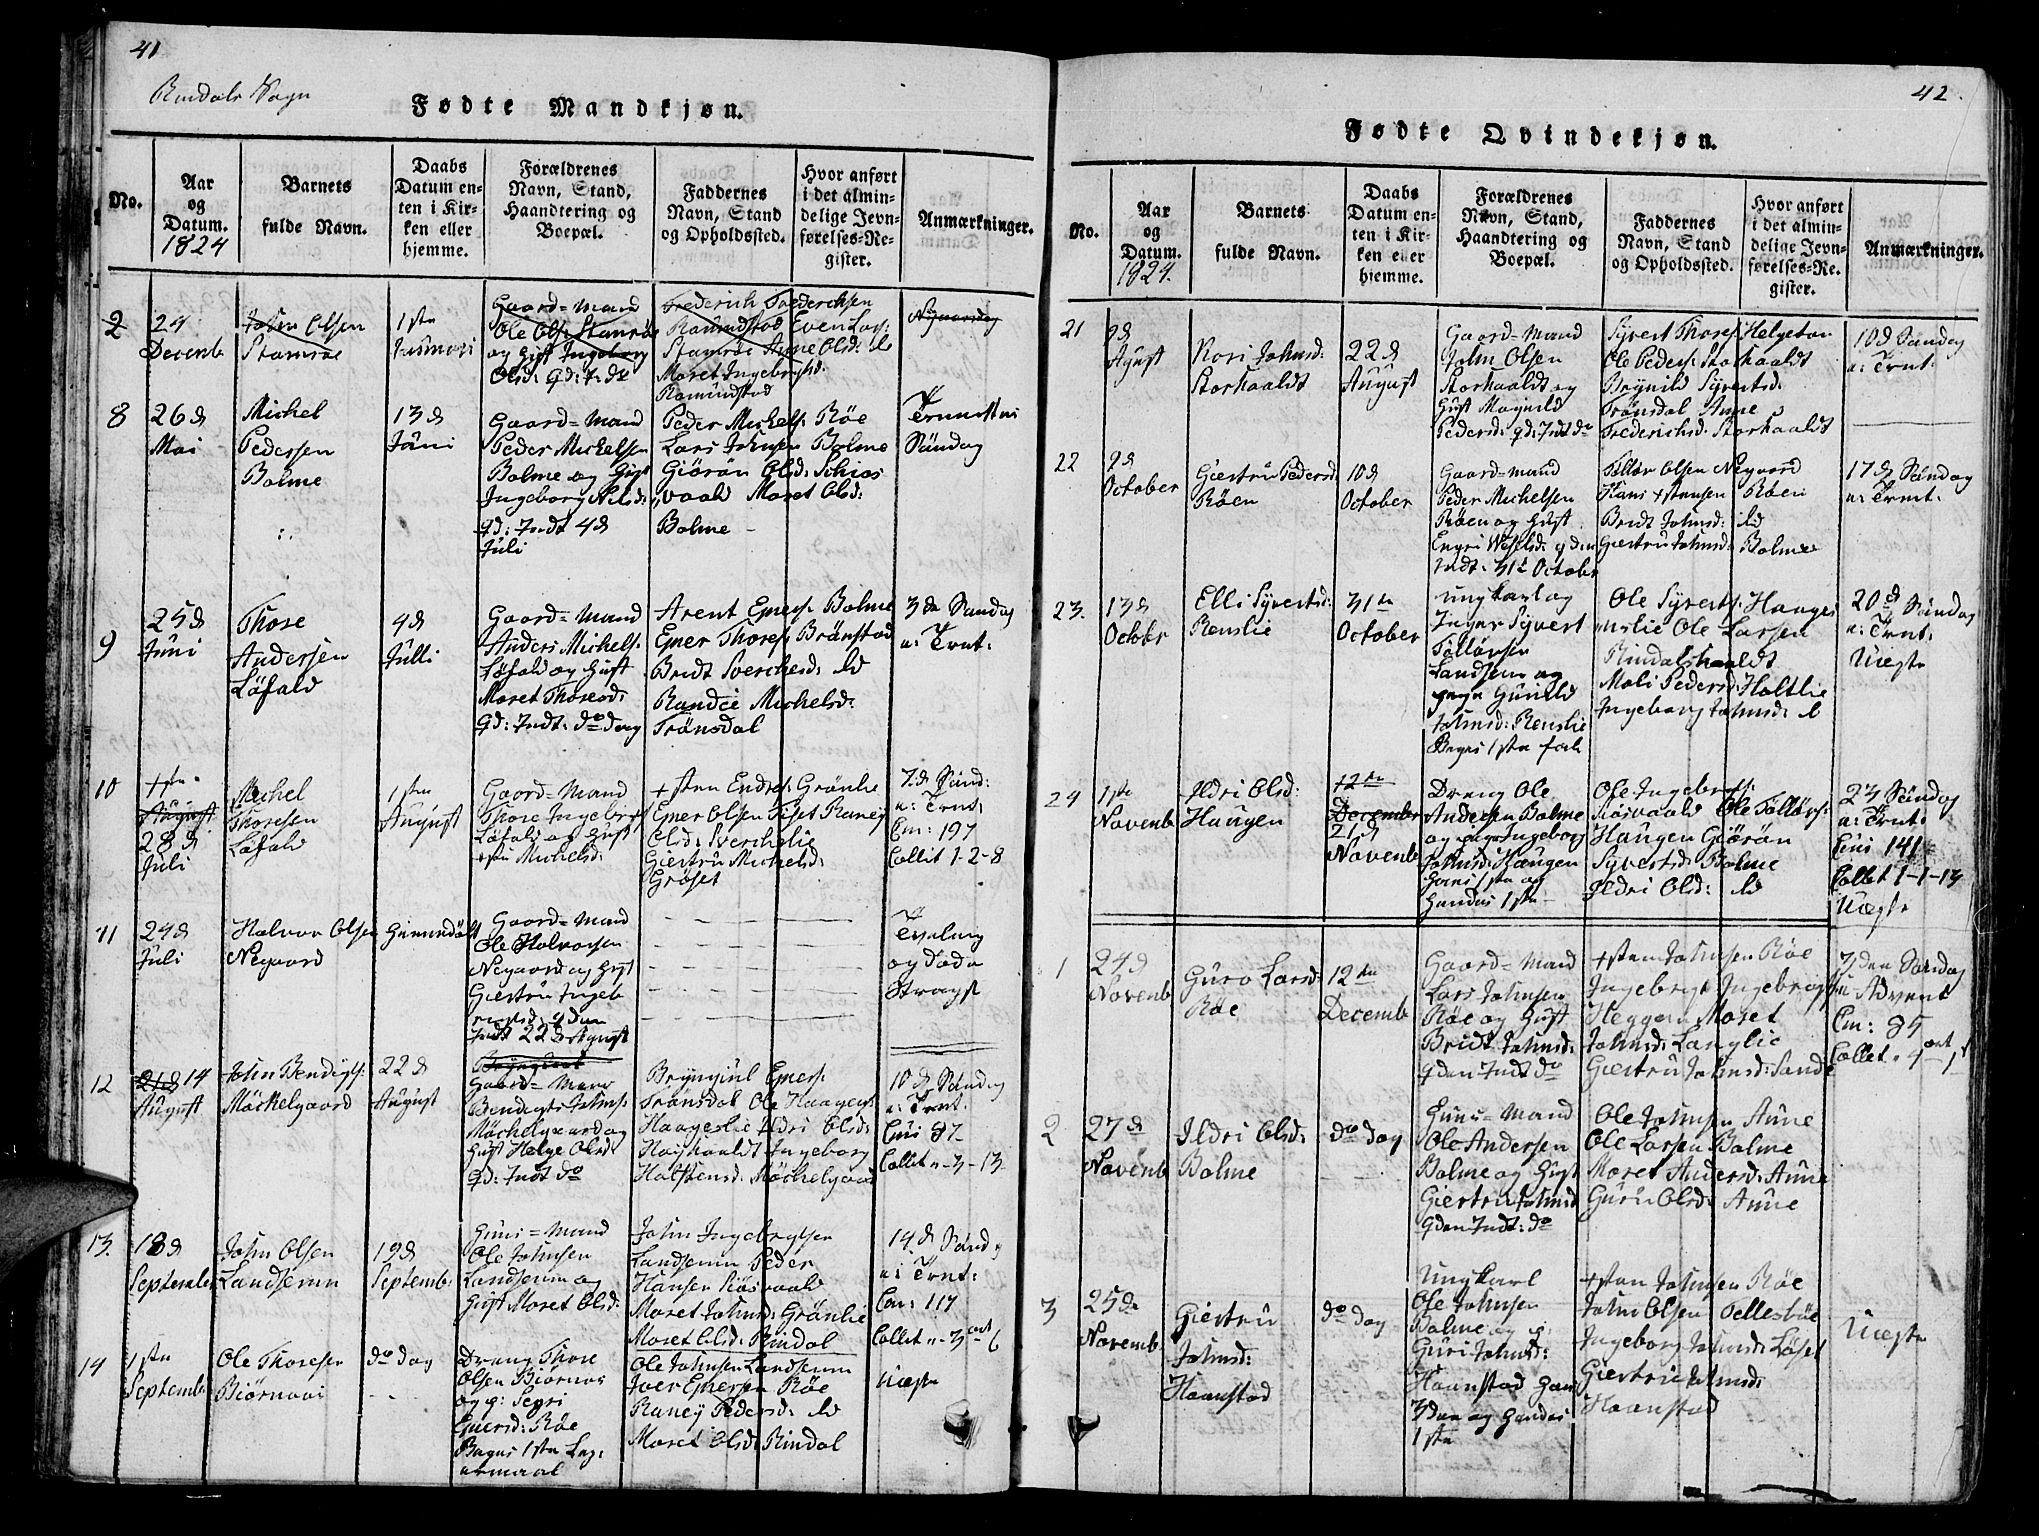 41
Rindals Sogn
Fødte Mandkjøn.
No.
Aar
og
Datum.
1824
Barnets
fulde Navn.
Daabs
Datum en-
ten i Kir-
ken eller
hjemme.
Forældrenes
Navn, Stand,
Haandtering og
Boepæl.
Faddernes
Navn, Stand
og Opholdssted.
Hvor anført
i det almin-
delige Jevn-
førelses-Re-
gister.
Anmærkninger.
2
24
Decemb
John Olsen
Stamrøe
1ste
Gaard-Mand
Ole Ols: Stamrøe
og Gift Ingeborg
Olsd:
Frederich Frederichsen
Romundstad Even Lars:
Stamrøe Anne Olsd:
Maret Ingebrigtsd:
Romundstad
8
26d
Mai
Michel
Pedersen
Bolme
13d
Juni
Gaard-Mand
Peder Michelsen
Bolme og Gift
Ingeborg Nilsd:
gd: Indt 4d
Juli
Peder Michels: Røe
Lars Johnsen Bolme
Giørøn Olsd: Schios
vaald Maret Olsd:
Bolme
Søndag
9
25d
Juni
Thore
Andersen
Løfald
4d
Julli
Gaard-Mand
Anders Michels:
Løfald og Gift
Maret Thoresd:
gd: Indt: do dag
Arent Eners: Bolme
Ener Thores: Brønstad
Bridt Sverchesd: ld
Randie Michelsd:
Trønsdal
3de Søndag
a: Trnt:
10
1ste
August
28d
Juli
Michel
Thoresen
Løfald
1ste
August
Gaard-Mand
Thore Ingebrigts
Løfald og Gift
Michelsd:
+sten Endres: Grønlie
Ener Olsen Fiset Raney
Olsd: Sverchslie
Giertru Michelsd:
Grøset
7d Sønd:
a: Trnt:
Em: 197
Collit 1-2-8
11
24d
Juli
Halvor Olsen
Negaard
Hiemmedøbt
Gaard-Mand
Ole Halvorsen
Negaard og Gift
Giertru Ingeb
rigtsd: gden
Indt 22d August
og døde
Stragst
12
21d 14
August
John Bendigts:
Møchelgaard
22d
August
Gaard-Mand
Bendigts Johns:
Møchelgaard og
Gift Helge Olsd
gd: Indt do
Bryngiul Eners:
Trønsdal Ole Haagens:
Haageslie Ildri Olsd:
Ingeborg
Halstensd: Møchelgaard
10d Søndag
a: Trnt.
87
Collet "-3-13
13.
18d
September
John Olsen
Landsemm
19d
Septemb:
Huus-Mand
Ole Johnsen
Landsemm og
Gift Maret Olsd:
John Ingebrigtsen
Landsemm Peder
Hansen
Maret Johnsd: Grønlie
Maret Olsd: Rindal
14d Sønd
a: Trnt:
Em: 117
Collet "-3 ort 6
14
1ste
Septemb
Ole Thoresen
Biørnaas
do dag
Dreng Thore
Olsen Biørnaas
og p: Segri
Enersd: Røe
Begges 1ste Leg:
ermaal
Ole Johnsen Landsemm
Iver Enersen Røe
Raney Pedersd: ld
Maret Olsd: Rindal
Uægte
42
Fødte Qvindekjøn.
No.
Aar
og
Datum.
1824.
Barnets
fulde Navn.
Daabs
Datum en-
ten i Kir-
ken eller
hjemme.
Forældrenes
Navn, Stand,
Haandtering og
Boepæl.
Faddernes
Navn, Stand
og Opholdssted.
Hvor anført
i det almin-
delige Jevn-
førelses-Re-
gister.
Anmærkninger.
21
9d
Agust
Kari Johnsd:
Storhaaldt
22d
August
Gaard-Mand
John Olsen
Storhaaldt og
Gift Magnild
Pedersd: gd: Indt do
Syvert Thores: Helgeton
Ole Peders: Storhaaldt
Brynild Syvertsd:
Trønsdal Anne
Frederichsd: Storhaaldt
10d Søndag
a: Trnt:
22
9d
October
Giertru Pedersd
Røen
10d
October
Gaard-mand
Peder Michelsen
Røen og Gift
gden
Indt: 31te October
Tølløv Olsen Negaard
Hans +stensen Røen
Bridt Johnsd: ld
Giertru Johnsd: Bolme
17d Søndag
a: Trnt:
23.
13d
Octobr
Elli Syvertsd:
Renslie
31te
October
Ungkarl og
Syvert
Tølløvsen
Landsem og
Gunild
Johnsd: Renslie
Begges 1ste
Ole Syverts: Haages
Ole Larsen
Rindalshaaldt
Mali Pedersd: Holtlie
Ingeborg Johnsd: ld
20d Søndag
a: Trnt:
Uægte
24
1ste
Novemb
Ildri Olsd:
Haugen
12te
December
21d
Novemb
Dreng Ole
Andersen Bolme
og pige Ingeborg
Johnsd: Haugen
Hans 1ste og
Hendes 1ste
Ole Ingebrigts:
Ole Tølløvs:
Haugen Giørøn
Syvertsd: Bolme
Ildri Olsd: ld
23 Søndag
a: Trnt:
141
Collet 1-1-13
Uægte
1
24d
Novemb
Guro Larsd:
Røe
12te
Decemb
Gaard-Mand
Lars Johnsen
Røe og Gift
Bridt Johnsd:
gden Indt do
+sten Johnsen Røe
Ingebrigt Ingebrigts
Heggem Maret
Johnsd: Langlie
Giertru Johnsd: Sande
3den Søndag
Advent
Em: 85
Collet "4 ort 1
2
27d
Novemb
Ildri Olsd:
Bolme
do dag
Huus-Mand
Ole Andersen
Bolme og Gift
Giertru Johnsd
gden Indt: do
Ole Johnsen Aune
Ole Larsen Bolme
Maret Andersd: Aune
Guru Olsd: Aune
3
25de
Novemb
Giertru
Johnsd:
Haanstad
do dag
Ungkarl
Ole Johnsen
Bolme og p:
Guri Johnsd:
Haanstad Hans
3den og Hendes
1ste
+sten Johnsen Røe
John Olsen
Ingeborg Johnsd: Løset
Giertru Johnsd:
Haanstad
Uægte